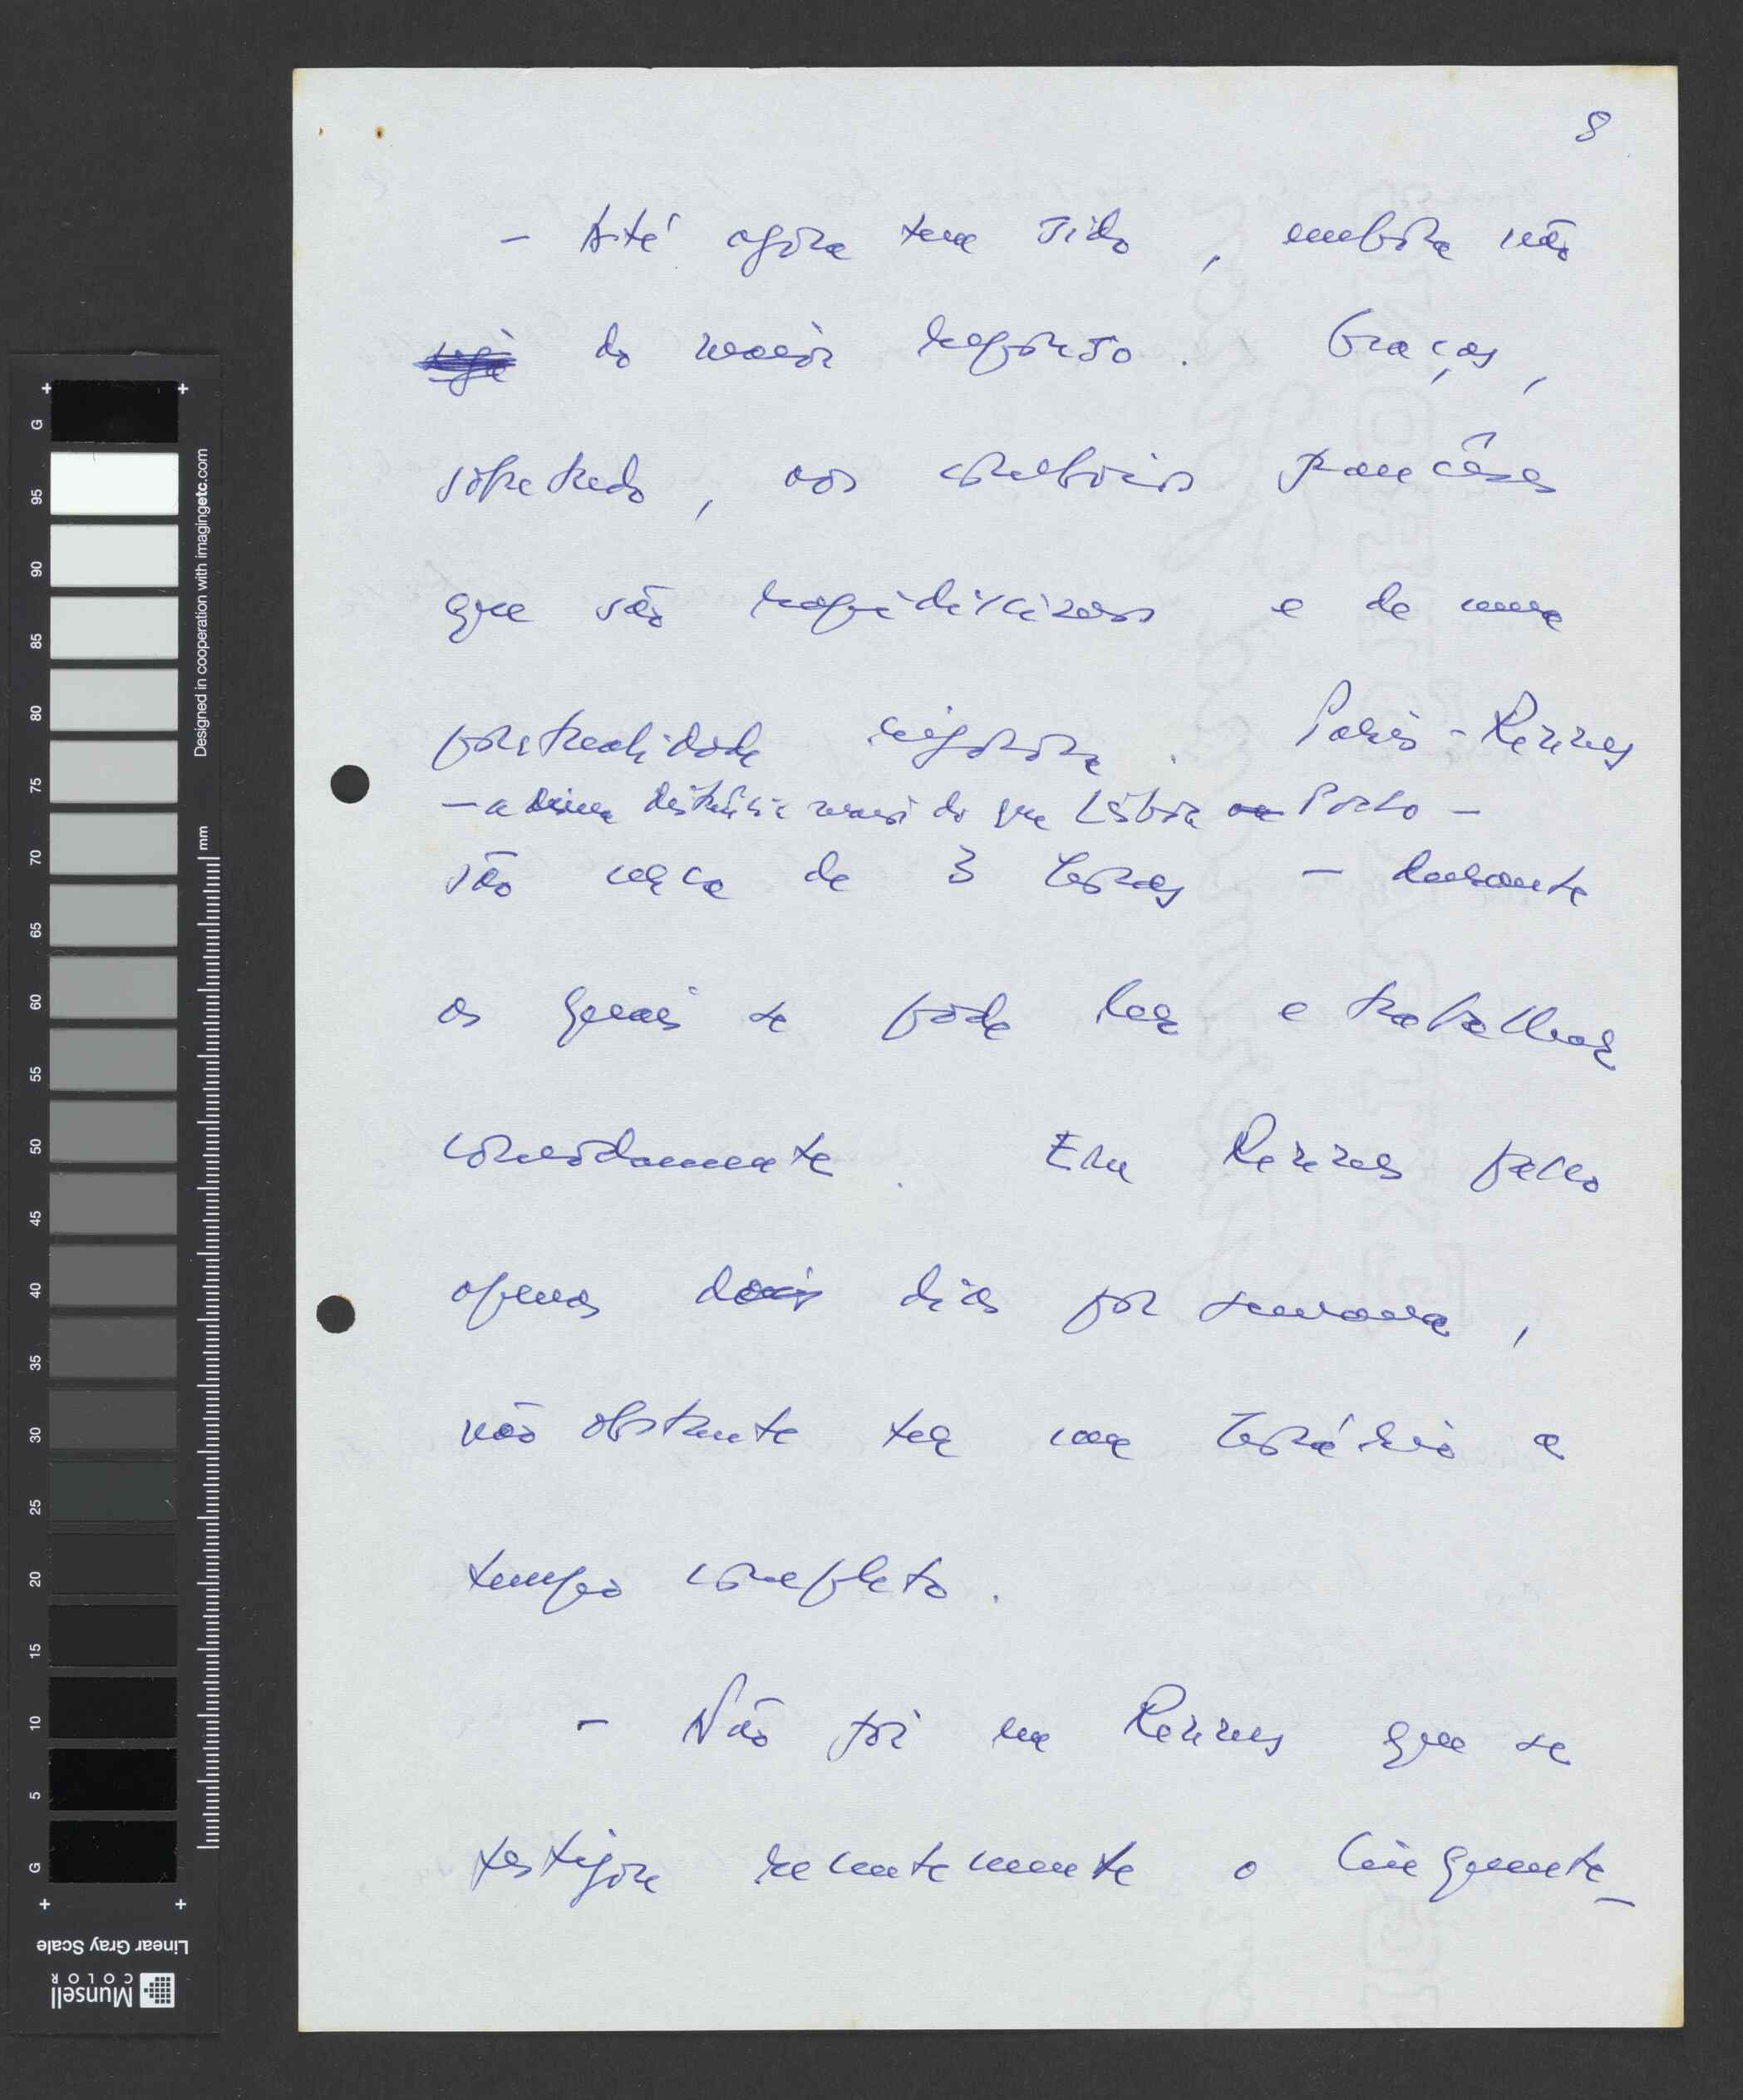 8
- Até agora tem sido, embora não
do maior repouso. Graças,
sobretudo, aos comboios franceses
que são rapidíssimos e de uma
pontualidade rigorosa. Paris-Rennes
- a distância maior do que Lisboa Porto -
são cerca de 3 horas - durante
as quais se pode ler e trabalhar
comodamente. Em Rennes passo
apenas dois dias por semana,
não obstante ter um horário a
tempo completo.
- Não foi em Rennes que se
festejou recentemente o Cinquente-
G 95 90 85 80 75 70 65 60 55 50 45 40 35 30 25 20 15 10 5 G
Designed in cooperation with imagingetc.com
mm
Linear Gray Scale
Munsell
COLOR